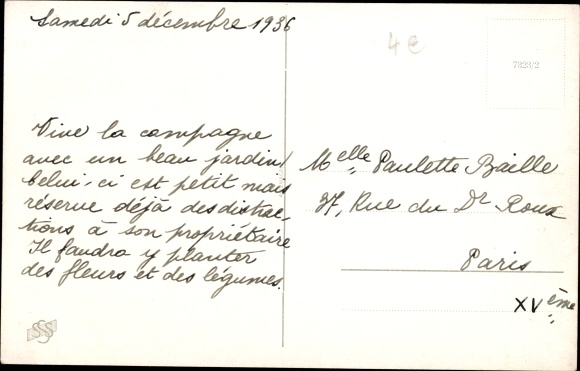 Samedi 5 décembre 1936
4€
7323/2
Vive la campagne
avec un beau jardin!
Celui-ci est petit mais
réserve déjà des distrac-
tions à son propriétaire
Il faudra y planter
des fleurs et des légumes.
Melle Paulette Baille
37, Rue du Dr Roux
Paris
XVème